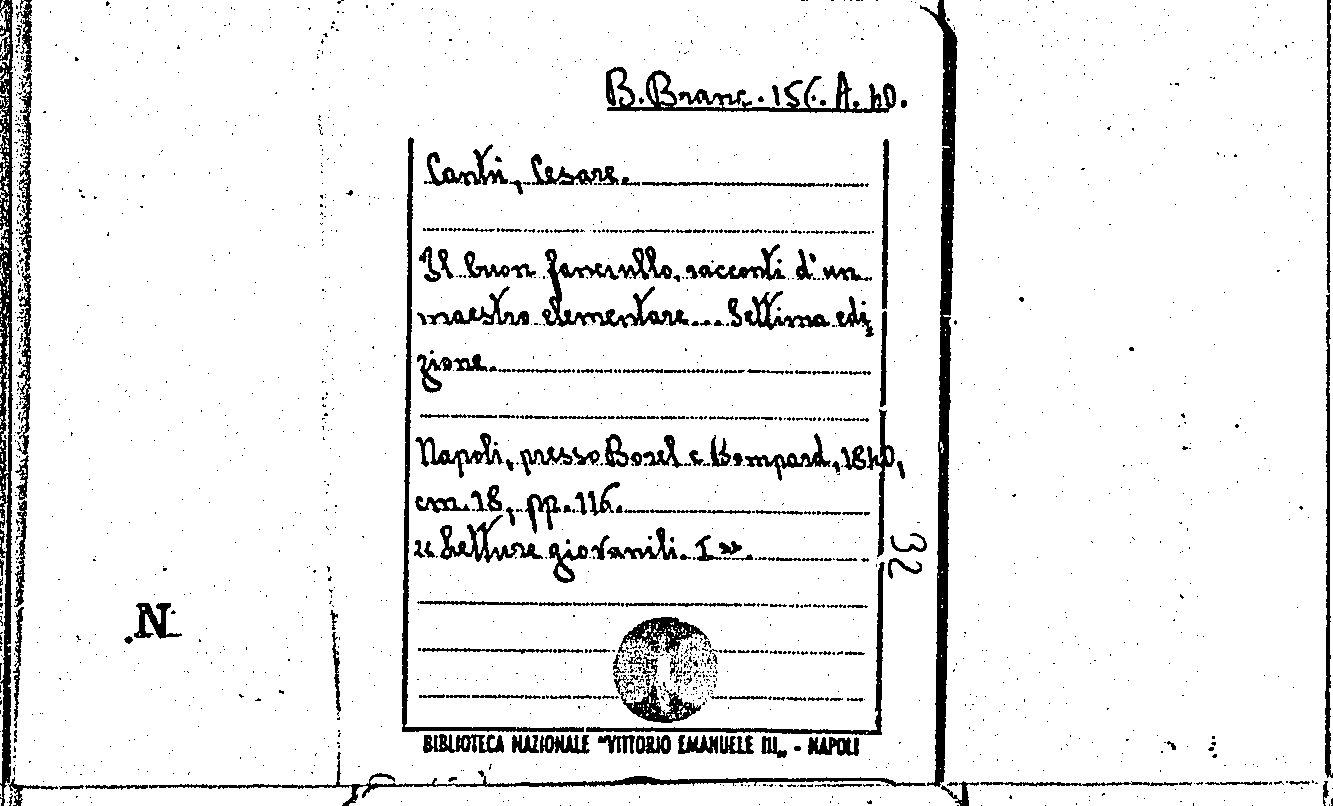 B. Branc. 156. A. 40.
Cantù, Cesare.
Il buon fanciullo, racconti d'un
maestro elementare... Settima edi-
zione.
Napoli, presso Borel e Bompard, 1840,
cm. 18, pp. 116.
"Letture giovanili. I".
32
N
BIBLIOTECA NAZIONALE "VITTORIO EMANUELE III„ - NAPOLI